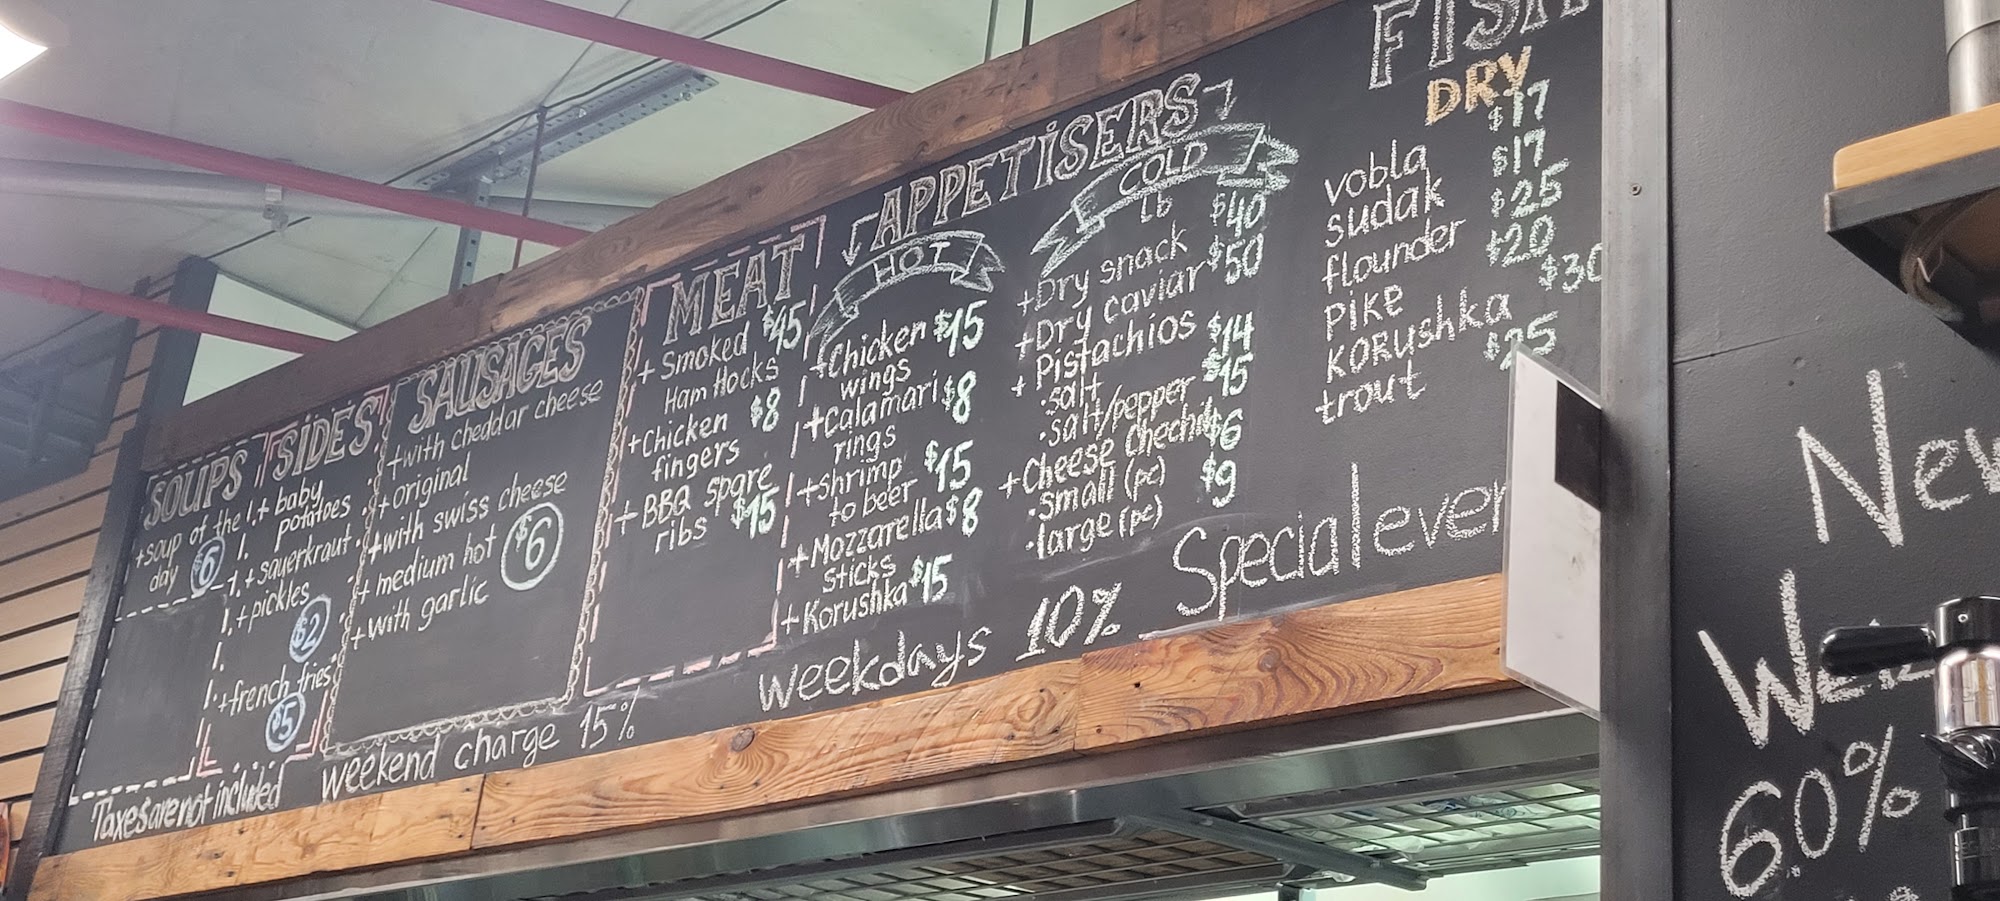 SOUPS
+soup of the
day $6
SIDES
+ baby
potatoes
+ sauerkraut
+ pickles
$2
+french fries
$5
SAUSAGES
+with cheddar cheese
+original
+with swiss cheese
+ medium hot
+with garlic
$6
MEAT
+ Smoked $45
Ham Hocks
+Chicken $8
fingers
+ BBQ spare
ribs $15
APPETISERS
HOT
+Chicken $15
wings
+Calamari $8
rings
+shrimp $15
to beer
+Mozzarella $8
sticks
+Korushka $15
COLD
Lb
+Dry snack $40
+Dry caviar $50
+ Pistachios
.salt $14
.salt/pepper $15
+Cheese Chechil
.small (pc) $6
.large (pc) $9
FISH
DRY
vobla $17
sudak $17
flounder $25
pike $20
KORushka $30
trout $25
Taxes are not included
weekend charge 15%
weekdays 10%
Special
New
6.0%